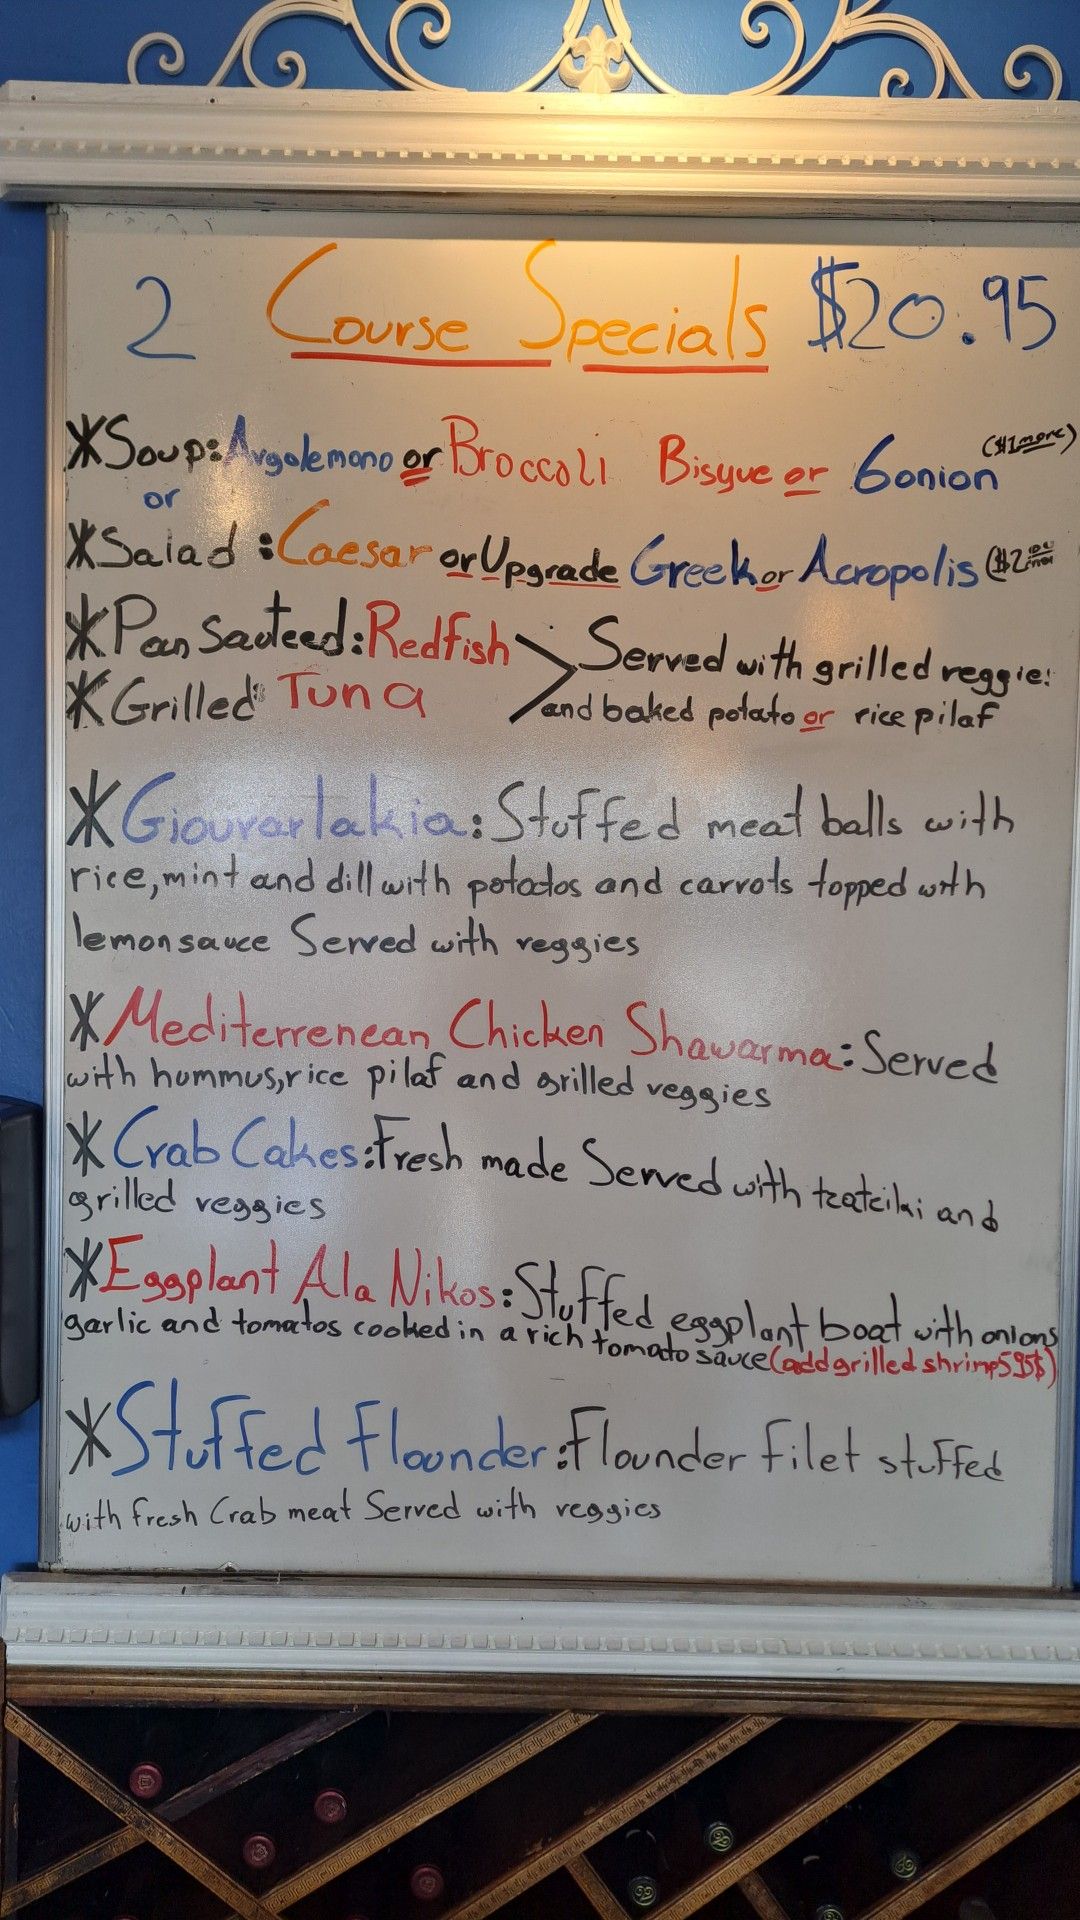 2 Course Specials $20.95
*Soup: Avgolemono or Broccoli Bisque or 6onion ($1more)
or
*Salad: Caesar or Upgrade Greek or Acropolis ($2
*Pan Sauteed: Redfish
*Grilled: Tuna
Served with grilled veggie
and baked potato or rice pilaf
*Giouvarlakia: Stuffed meat balls with
rice, mint and dill with potatos and carrots topped with
lemon sauce Served with veggies
*Mediterrenean Chicken Shawarma: Served
with hummus, rice pilaf and grilled veggies
*Crab Cakes: Fresh made Served with tzatziki and
grilled veggies
*Eggplant Ala Nikos: Stuffed eggplant boat with onions
garlic and tomatos cooked in a rich tomato sauce (add grilled shrimp 595$)
*Stuffed Flounder: Flounder filet stuffed
with fresh Crab meat Served with veggies